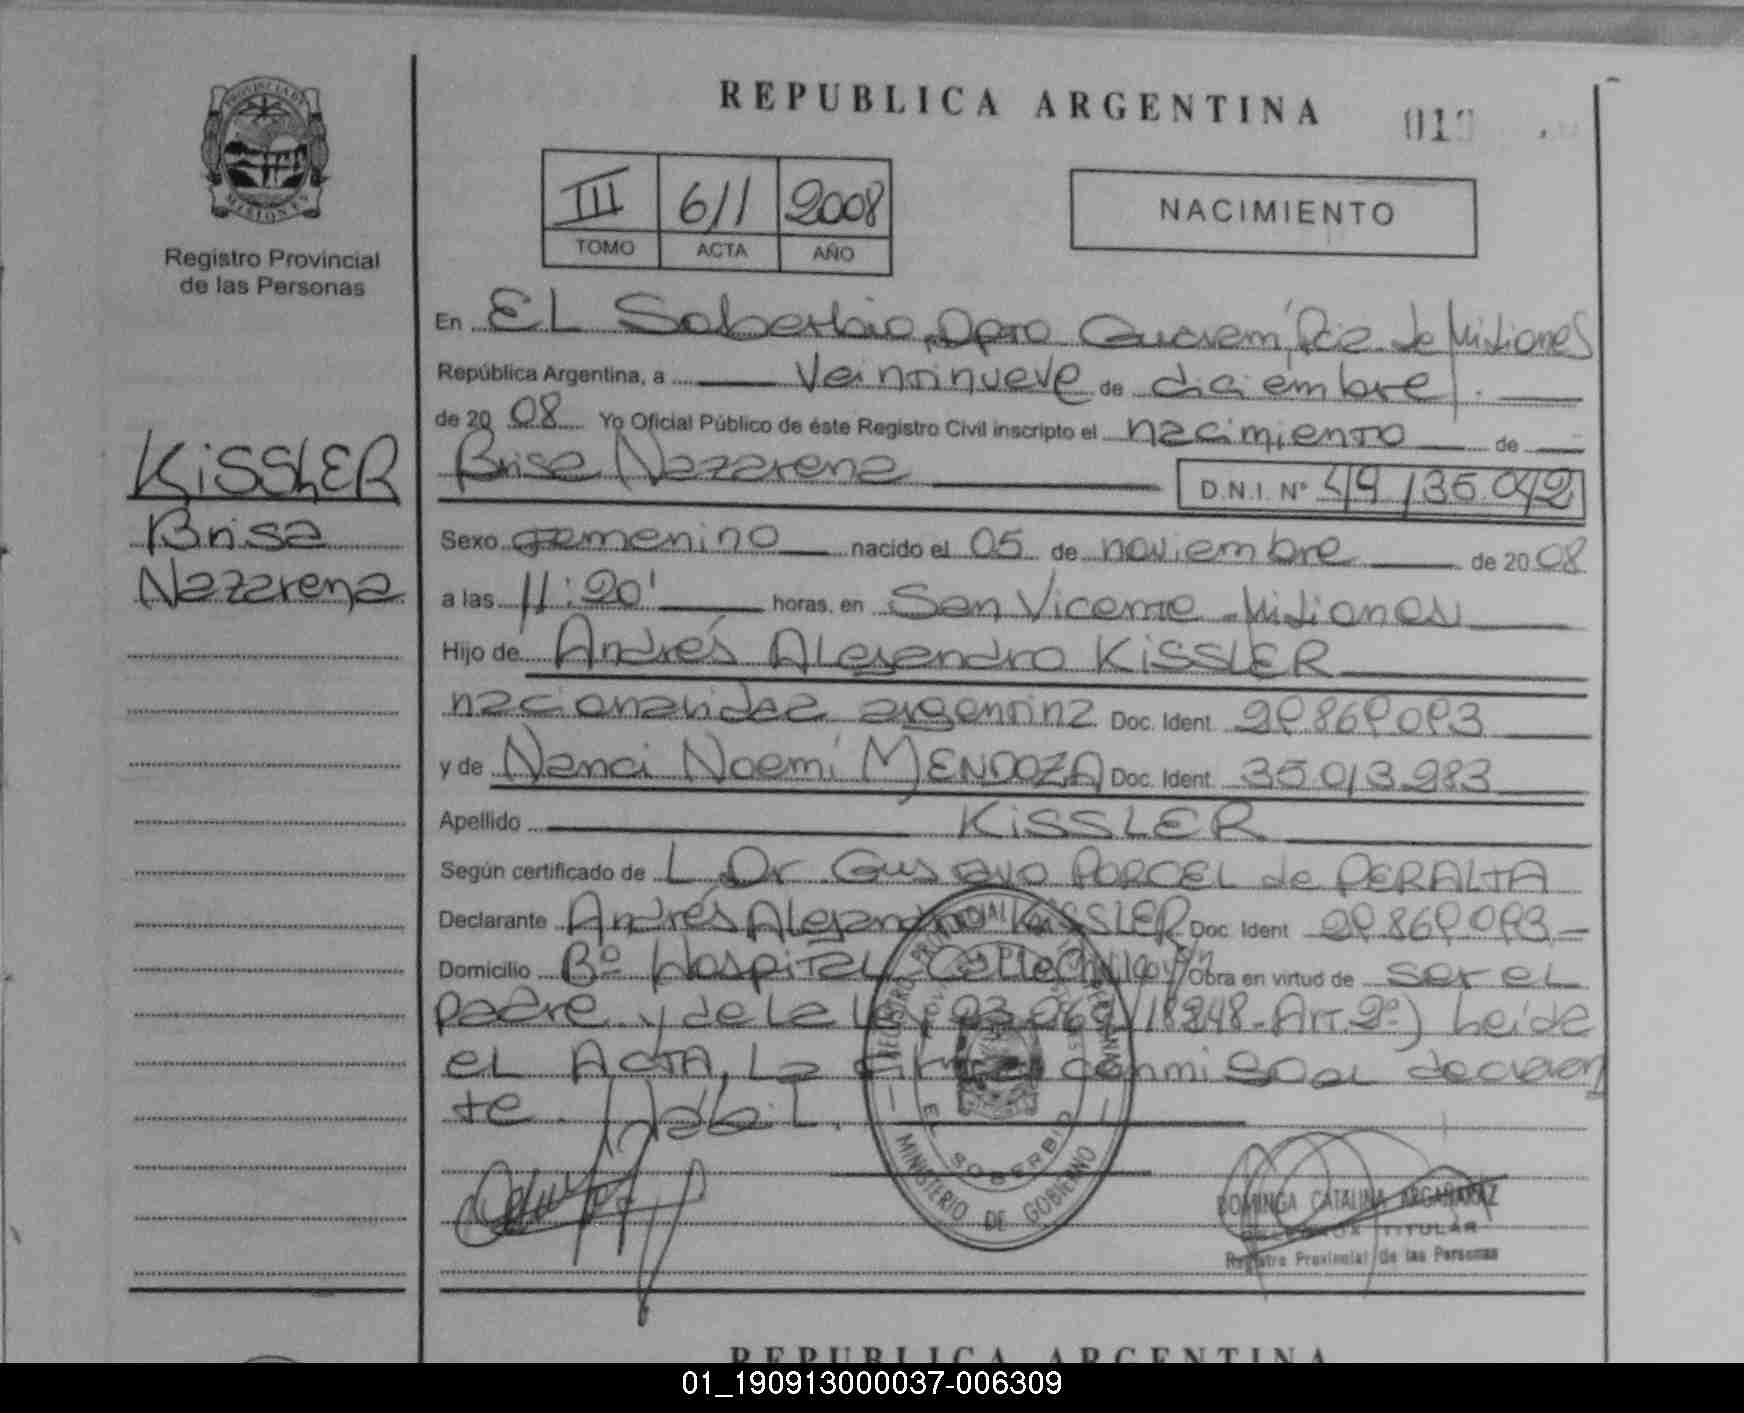 REPUBLICA ARGENTINA
PROVINCIA DE
MISIONES
Registro Provincial
de las Personas
III 611 2008
TOMO ACTA AÑO
NACIMIENTO
En EL Soberbio, Dpto Guaraní, Pcia de Misiones
República Argentina, a Veintinueve de diciembre
de 2008 Yo Oficial Público de éste Registro Civil inscripto el nacimiento de
Brisa Nazarena D.N.I. Nº 49.135.042
KiSSLER
Brisa
Nazarena
Sexo femenino nacido el 05 de noviembre de 2008
a las 11:20' horas, en San Vicente - Misiones
Hijo de Andrés Alejandro KiSSLER
nacionalidad argentina Doc. Ident.
y de Nanci Noemí MENDOZA Doc. Ident. 35.013.983
Apellido KiSSLER
Según certificado de L Dr Gustavo PORCEL de PERALTA
Declarante Andrés Alejandro KiSSLER Doc. Ident.
Domicilio Bº Hospital Obra en virtud de ser el
padre y de la Ley 18248-Art. 2º) Leída
el ACTA, La firma conmigo el declaran
te.
REGISTRO PROVINCIAL DE LAS PERSONAS
EL SOBERBIO
MINISTERIO DE GOBIERNO
DOMINGA CATALINA ARGAÑARAZ
TITULAR
Registro Provincial de las Personas
REPUBLICA ARGENTINA
01_190913000037-006309